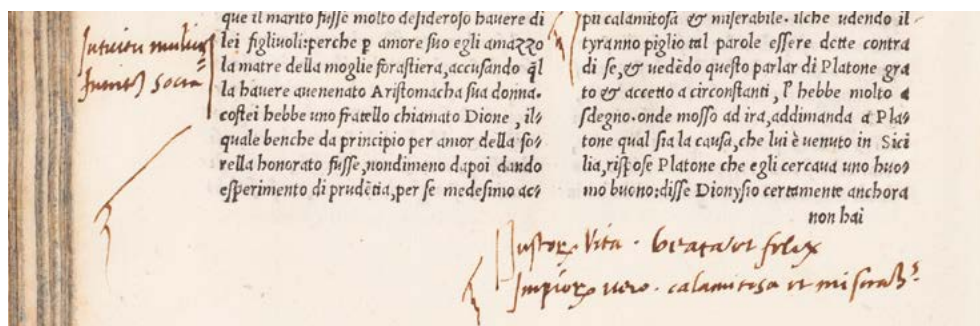 Intuitu mulier
Interfec Socra
que il marito fusse molto desideroso havere di
lei figlivoli:perche p amore suo egli amazzo
la matre della moglie forastiera,accusando q̃l
la havere avenenato Aristomacha sua donna.
costei hebbe uno fratello chiamato Dione, il-
quale benche da principio per amor della so-
rella honorato fusse,nondimeno dapoi dando
esperimento di prudẽtia,per se medesimo ac-
piu calamitosa & miserabile. ilche udendo il
tyranno piglio tal parole essere dette contra
di se,& uedẽdo questo parlar di Platone gra
to & accetto a circonstanti, l' hebbe molto a
sdegno.onde mosso ad ira,addimanda a Pla-
tone qual sia la causa,che lui è venuto in Sici
lia,rispose Platone che egli cercava uno huo-
mo buono:disse Dionysio certamente anchora
non hai
Iustorꝝ Vita . beata et felix
Impiorꝝ vero . calamitosa et miserab.